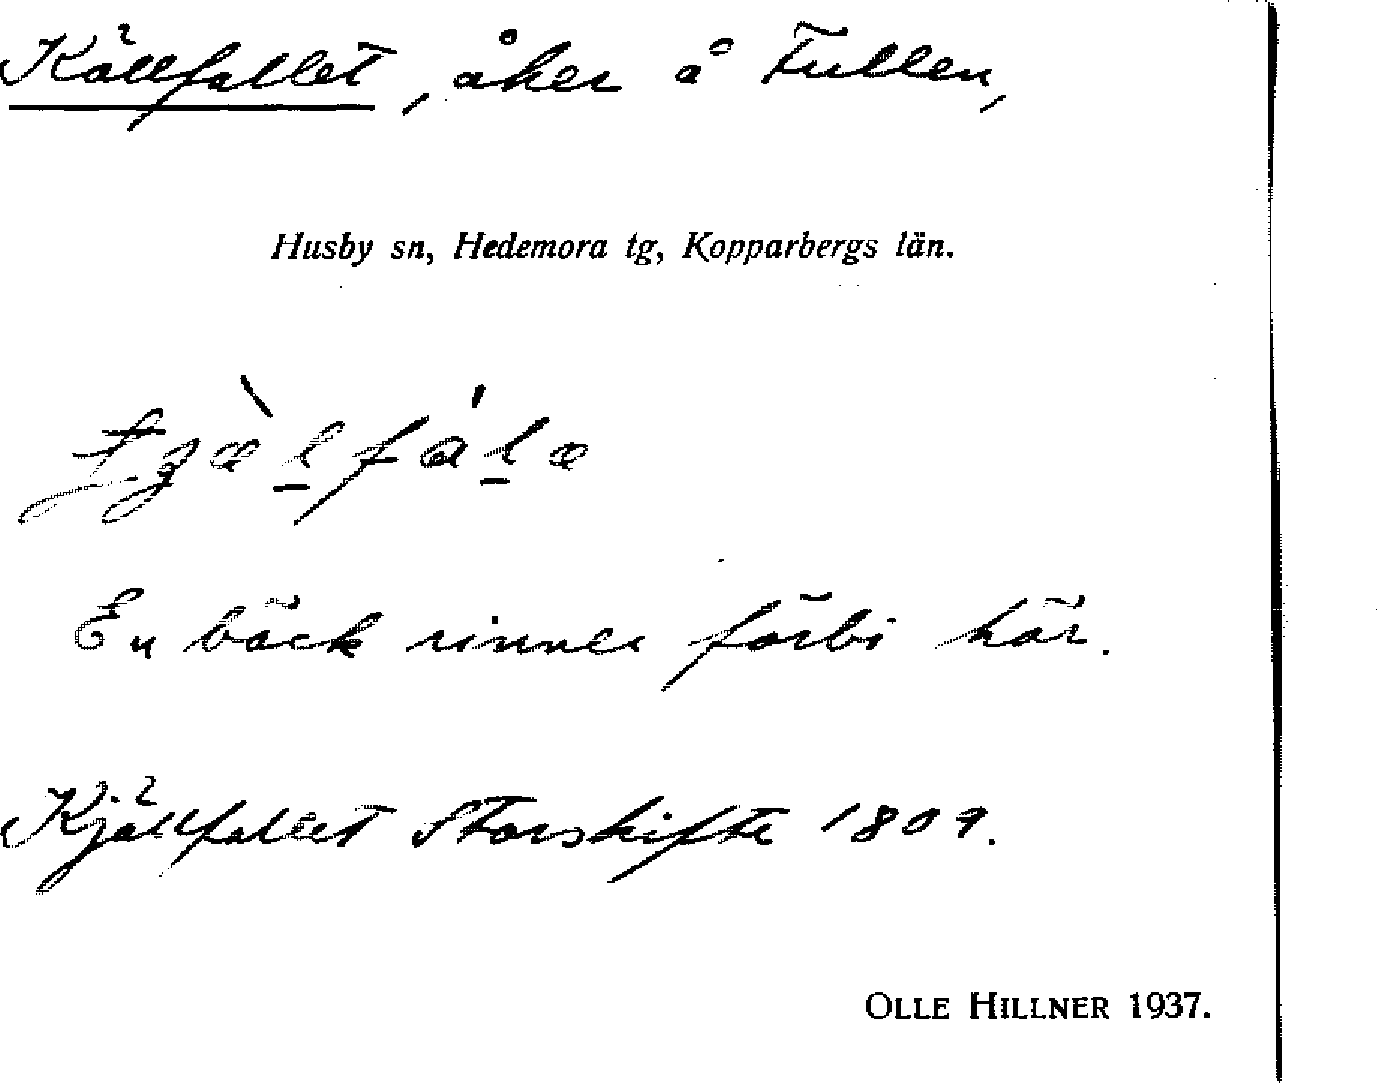 Källfallet, åker å Fullen,
Husby sn, Hedemora tg, Kopparbergs län.
En bäck rinner förbi här.
Kjällfallet Storskifte 1809.
OLLE HILLNER 1937.